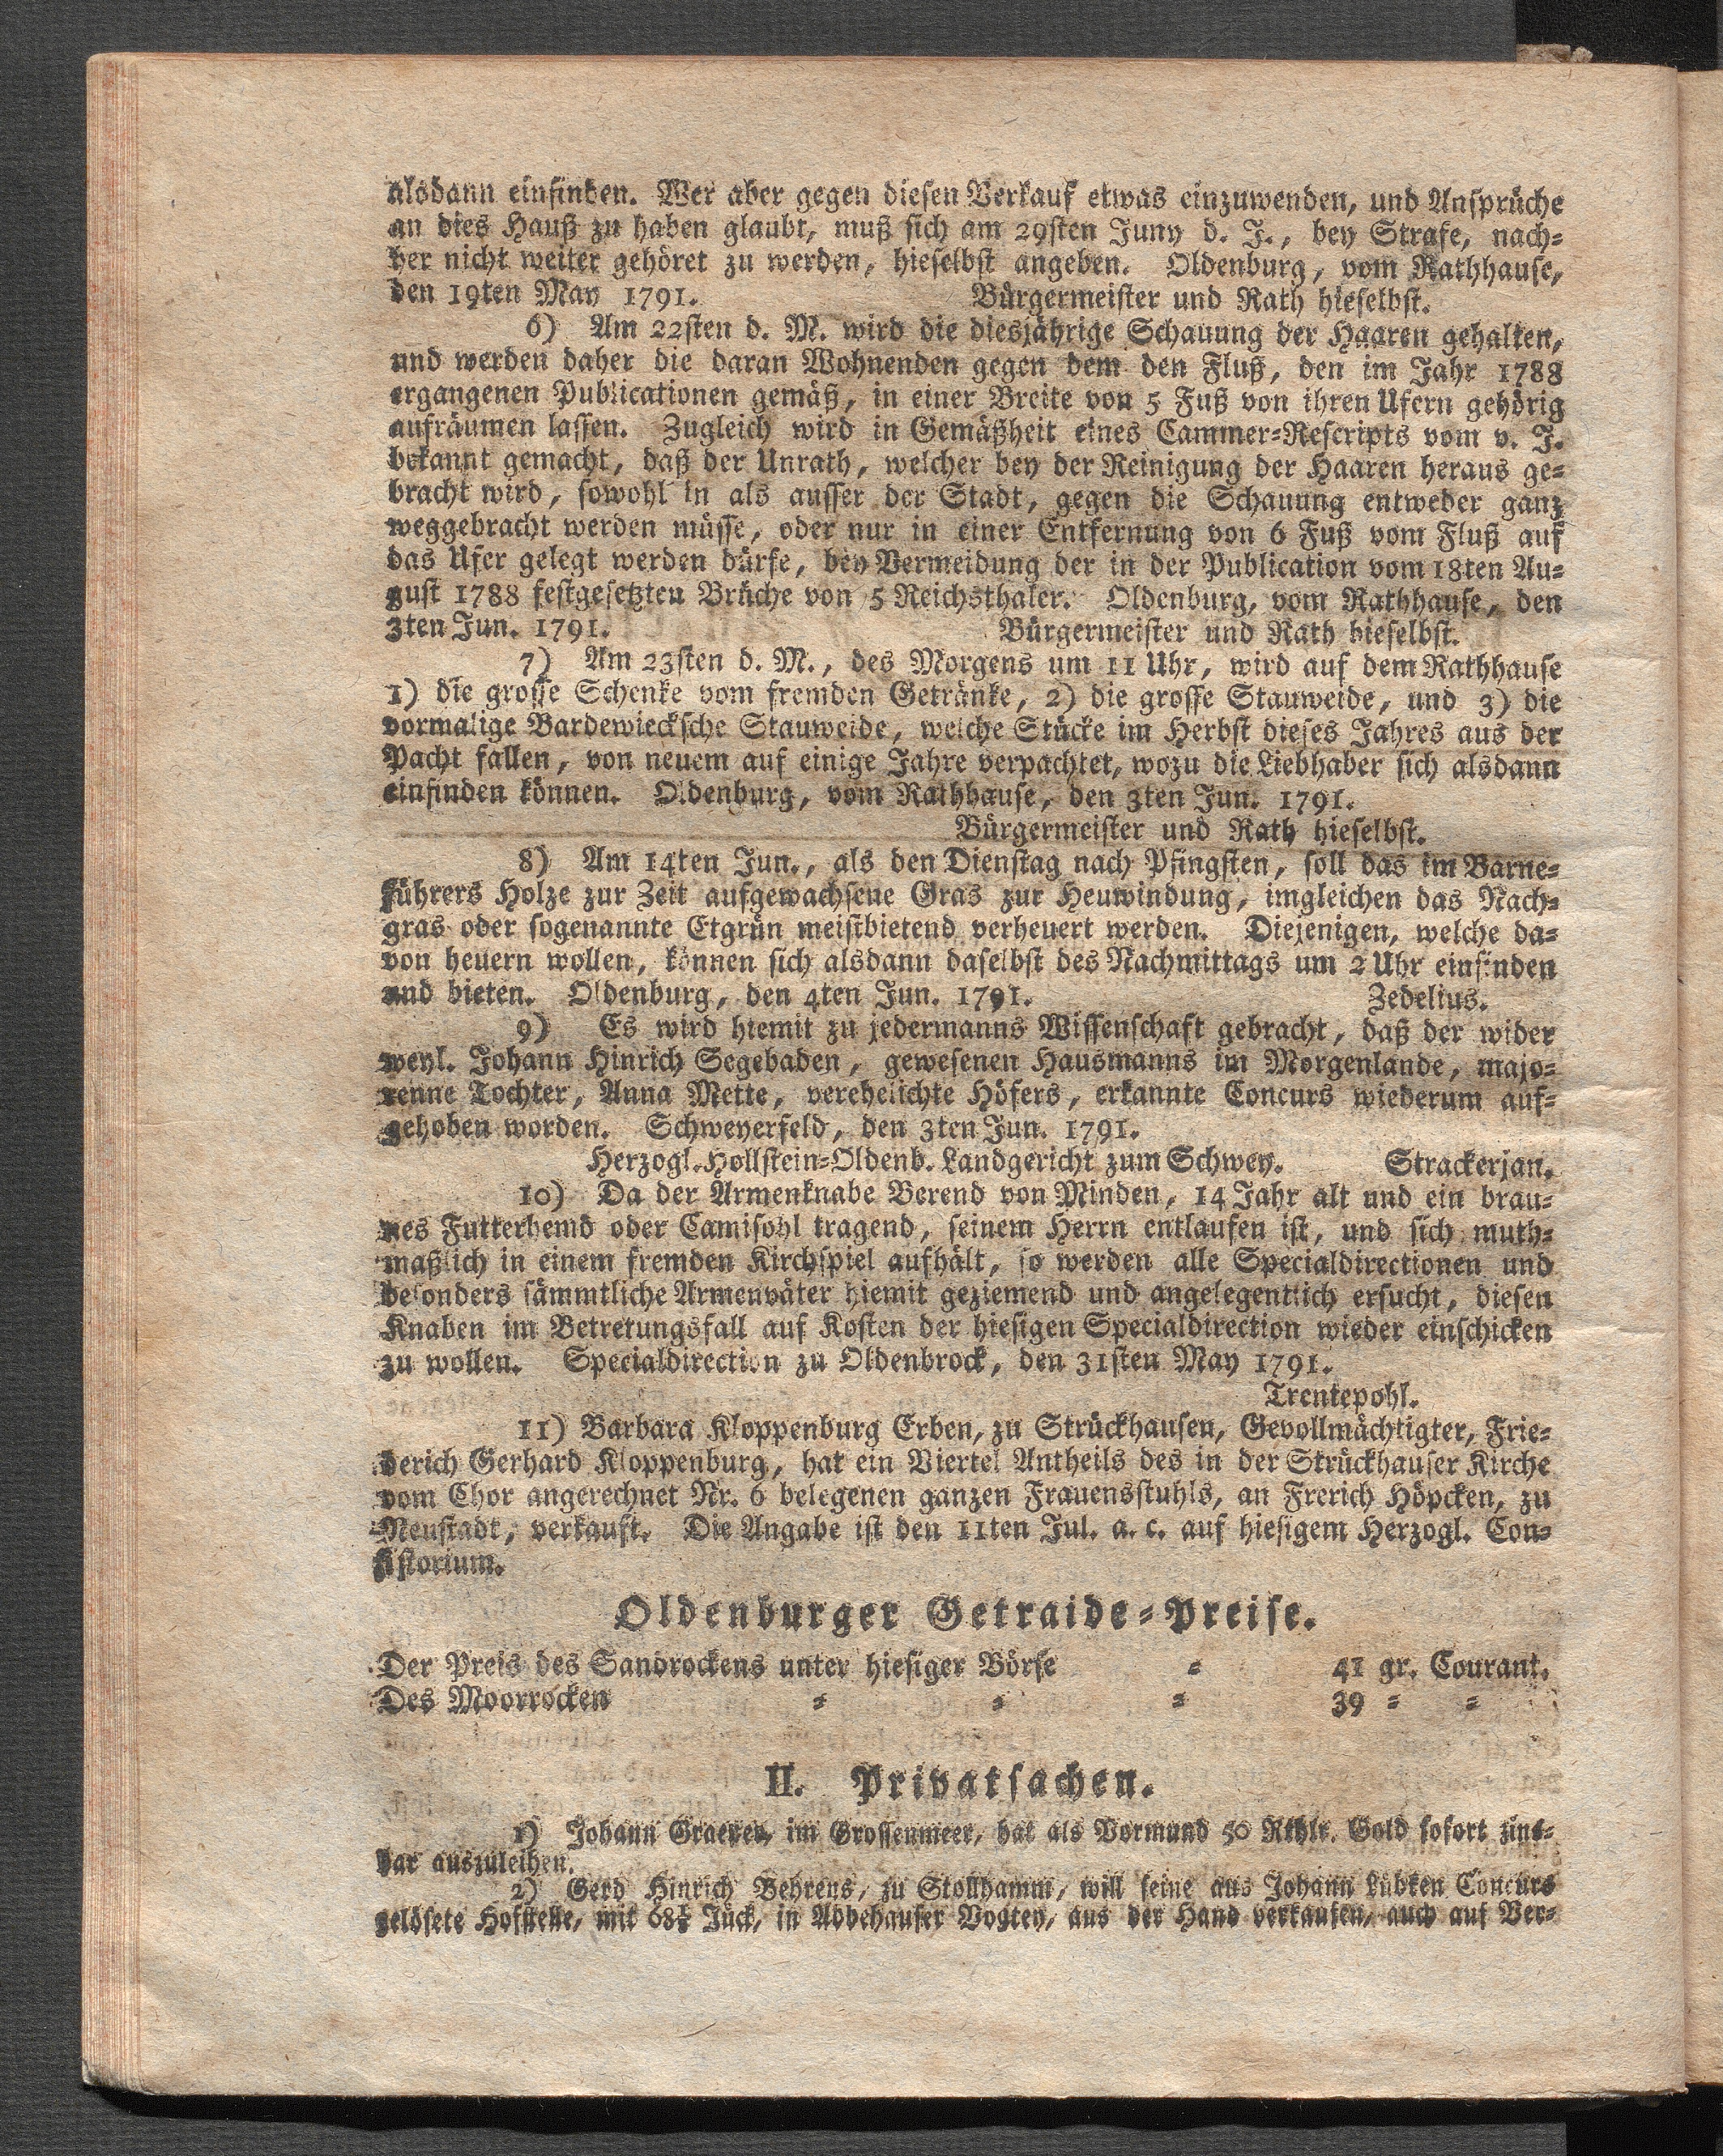 alsdann einfinden. Wer aber gegen diesen Verkauf etwas einzuwenden, und Ansprüche
an dies Hauß zu haben glaubt, muß sich am 29sten Juny d. J., bey Strafe, nach-
her nicht weiter gehöret zu werden, hieselbst angeben. Oldenburg, vom Rathhause,
den 19ten May 1791. Bürgermeister und Rath hieselbst.
6) Am 22sten d. M. wird die diesjährige Schauung der Haaren gehalten,
und werden daher die daran Wohnenden gegen dem den Fluß, den im Jahr 1788
ergangenen Publicationen gemäß, in einer Breite von 5 Fuß von ihren Ufern gehörig
aufräumen lassen. Zugleich wird in Gemäßheit eines Cammer-Rescripts vom v. J.
bekannt gemacht, daß der Unrath, welcher bey der Reinigung der Haaren heraus ge-
bracht wird, sowohl in als ausser der Stadt, gegen die Schauung entweder ganz
weggebracht werden müsse, oder nur in einer Entfernung von 6 Fuß vom Fluß auf
das Ufer gelegt werden dürfe, bey Vermeidung der in der Publication vom 18ten Au-
gust 1788 festgesetzten Brüche von 5 Reichsthaler. Oldenburg, vom Rathhause, den
3ten Jun. 1791. Bürgermeister und Rath hieselbst.
7) Am 23sten d. M., des Morgens um 11 Uhr, wird auf dem Rathhause
1) die grosse Schenke vom fremden Getränke, 2) die grosse Stauweide, und 3) die
vormalige Bardewiecksche Stauweide, welche Stücke im Herbst dieses Jahres aus der
Pacht fallen, von neuem auf einige Jahre verpachtet, wozu die Liebhaber sich alsdann
einfinden können. Oldenburg, vom Rathhause, den 3ten Jun. 1791.
Bürgermeister und Rath hieselbst.
8) Am 14ten Jun., als den Dienstag nach Pfingsten, soll das im Barne-
führers Holze zur Zeit aufgewachsene Gras zur Heuwindung, imgleichen das Nach-
gras oder sogenannte Etgrün meistbietend verheuert werden. Diejenigen, welche da-
von heuern wollen, können sich alsdann daselbst des Nachmittags um 2 Uhr einfinden
und bieten. Oldenburg, den 4ten Jun. 1791. Zedelius.
9) Es wird hiemit zu jedermanns Wissenschaft gebracht, daß der wider
weyl. Johann Hinrich Segebaden, gewesenen Hausmanns im Morgenlande, majo-
renne Tochter, Anna Mette, verehelichte Höfers, erkannte Concurs wiederum auf-
gehoben worden. Schweyerfeld, den 3ten Jun. 1791.
Herzogl. Hollstein-Oldenb. Landgericht zum Schwey. Strackerjan.
10) Da der Armenknabe Berend von Minden, 14 Jahr alt und ein brau-
nes Futterhemd oder Camisohl tragend, seinem Herrn entlaufen ist, und sich muth-
maßlich in einem fremden Kirchspiel aufhält, so werden alle Specialdirectionen und
besonders sämmtliche Armenväter hiemit geziemend und angelegentlich ersucht, diesen
Knaben im Betretungsfall auf Kosten der hiesigen Specialdirection wieder einschicken
zu wollen. Specialdirection zu Oldenbrock, den 31sten May 1791.
Trentepohl.
11) Barbara Kloppenburg Erben, zu Strückhausen, Gevollmächtigter, Frie-
derich Gerhard Kloppenburg, hat ein Viertel Antheils des in der Strückhauser Kirche
vom Chor angerechnet Nr. 6 belegenen ganzen Frauensstuhls, an Frerich Höpcken, zu
Neustadt, verkauft. Die Angabe ist den 11ten Jul. a. c. auf hiesigem Herzogl. Con-
sistorium.
Oldenburger Getraide-Preise.
Der Preis des Sandrockens unter hiesiger Börse - 41 gr. Courant.
Des Moorrocken - - - 39 - -
II. Privatsachen.
1) Johann Graeven, im Grossenmeer, hat als Vormund 50 Rthlr. Gold sofort zins-
bar auszuleihen.
2) Gerd Hinrich Behrens, zu Stollhamm, will seine aus Johann Lübken Concurs
gelösete Hofstelle, mit 68½ Jück, in Abbehauser Vogtey, aus der Hand verkaufen, auch auf Ver-